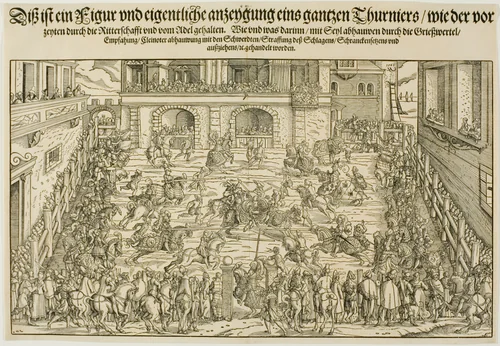 Diß ist ein Figur vnd eigentliche anzeygung eins gantzen Thurniers / wie der vor
zeyten durch die Ritterschafft vnd vom Adel gehalten. Wie vnd was darinn / mit Seyl abhauwen durch die Grießwertel /
Empfahung / Kleinoter abhauwung mit den Schwerdten / Straffung deß Schlagens / Schranckensetzens vnd
außziehens / ꝛc. gehandelt worden.